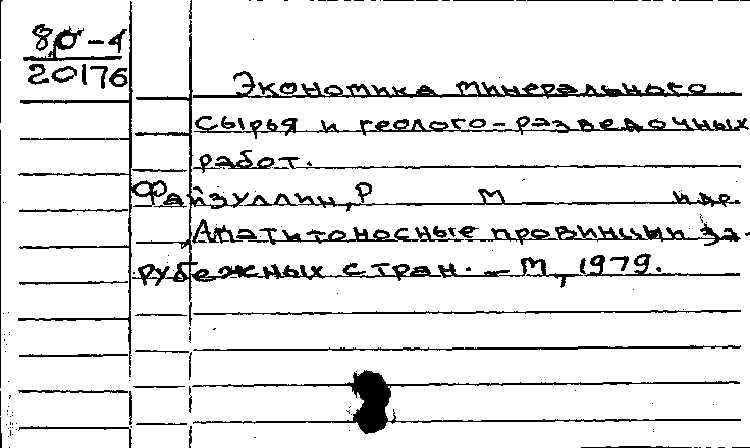 80-4
20176
Экономика минерального
сырья и геолого-разведочных
работ.
Файзуллин, Р М и др.
Апатитоносные провинции за-
рубежных стран. – М, 1979.